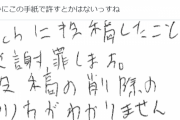 かにこの手紙で許すとかはないっすね
chに投稿したこと
謝罪します。
稿の削除の
りちがわかりません